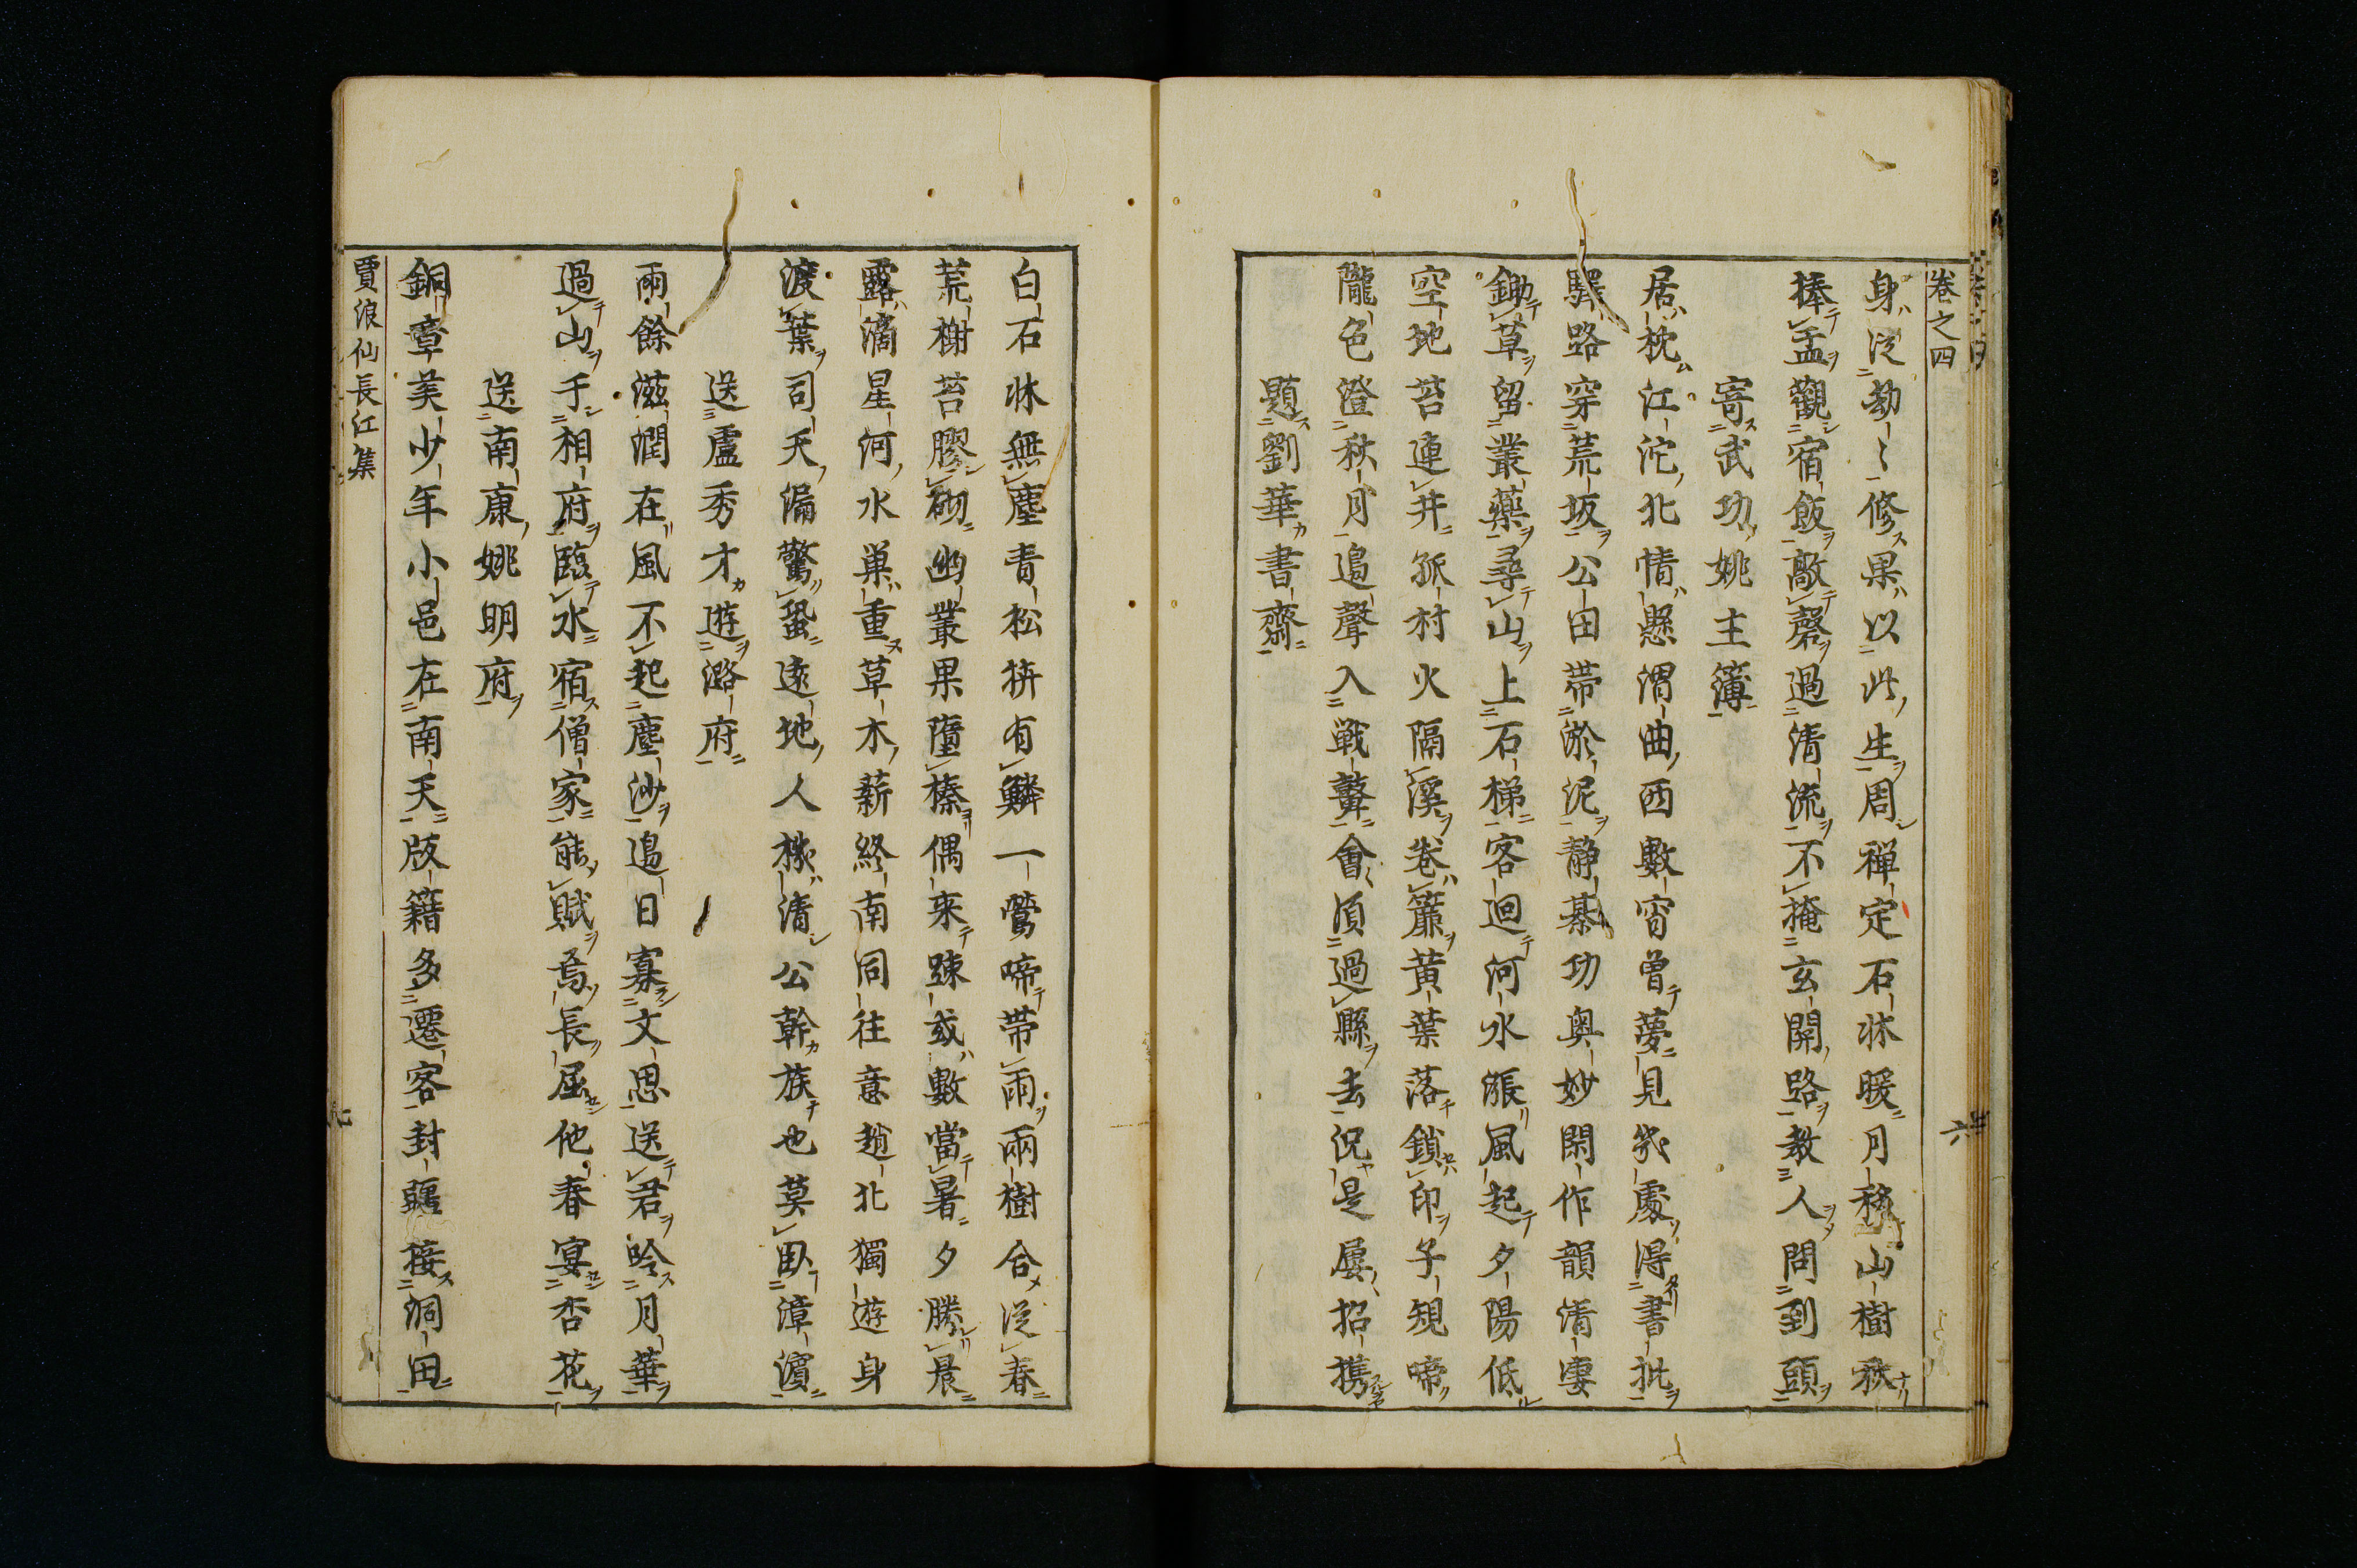 卷之四
六
身従劫〻修果以此生周禅定石牀暖月移山樹秋
捧盂觀宿飯敲磬過清流不掩玄関路教人問到頭
寄武功姚主簿
居枕江沱北情懸渭曲西數宵曽夢見幾處得書批
驛路穿荒坂公田帯淤泥静棊功奥妙閑作韻清凄
鋤草留叢藥尋山上石梯客迴河水漲風起夕陽低
空地苔連井孤村火隔溪巻簾黄葉落鎖印子規啼
隴色澄秋月邉聲入戰鼙會湏過縣去况是屡招携
題劉華書齋
白石牀無塵青松有鱗一鶯啼帯雨兩樹合従春
荒榭苔膠砌幽叢果墮榛偶来疎或數當暑夕勝晨
露滴星河水巣重草木薪終南同往意趙北獨遊身
渡葉司天漏驚蛩逺地人機清公幹族也莫臥漳濱
送盧秀才遊潞府
雨餘滋潤在風不起塵沙邉日寡文思送君吟月華
過山于相府臨水宿僧家能賦焉長屈他春宴杏花
送南康姚明府
銅章美少年小邑在南天版籍多遷客封疆接洞田
賈浪仙長江集